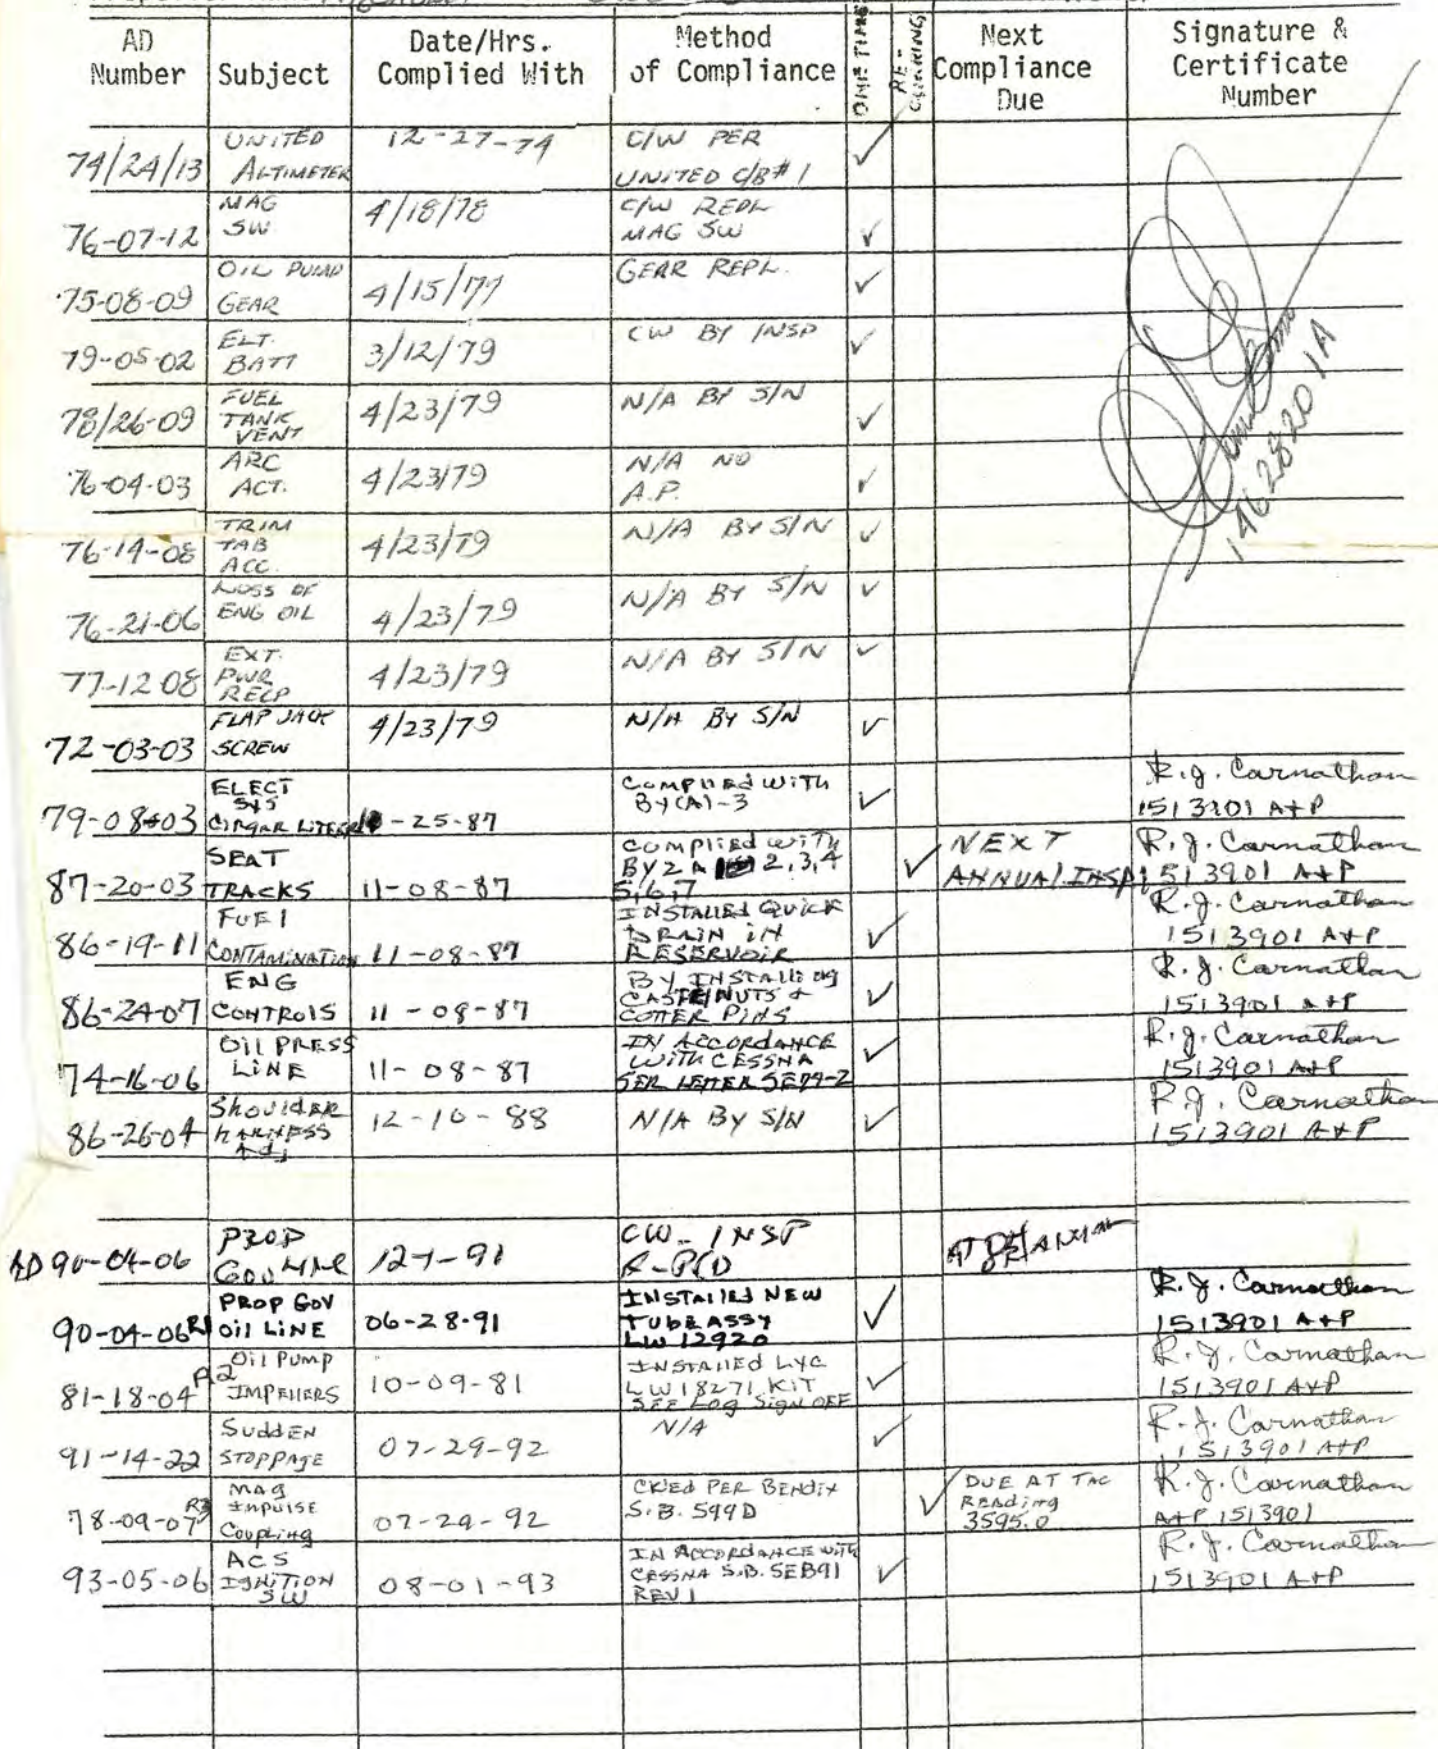 AD Number
Subject
Date/Hrs. Complied With
Method of Compliance
ONE TIME
RE-CURRING
Next Compliance Due
Signature & Certificate Number
74/24/13 UNITED ALTIMETER 12-27-74 C/W PER UNITED C/B# 1 ✓
76-07-12 MAG SW 4/18/78 C/W REPL MAG SW ✓
75-08-09 OIL PUMP GEAR 4/15/77 GEAR REPL. ✓
79-05-02 ELT. BATT 3/12/79 CW BY INSP ✓
78/26-09 FUEL TANK VENT 4/23/79 N/A BY S/N ✓
76-04-03 ARC ACT. 4/23/79 N/A NO A.P. ✓
76-14-08 TRIM TAB ACC. 4/23/79 N/A BY S/N ✓
76-21-06 LOSS OF ENG OIL 4/23/79 N/A BY S/N ✓
77-12 08 EXT. PWR RECP 4/23/79 N/A BY S/N ✓
72-03-03 FLAP JACK SCREW 4/23/79 N/A BY S/N ✓
1462820 IA
79-08-03 ELECT SYS CIRGAR LITEER 10-25-87 COMPLIED WITH BY(A)-3 ✓ R.J. Carnathan 1513901 A+P
87-20-03 SEAT TRACKS 11-08-87 COMPLIED WITH BY 2 A 2,3,4 5,6,7 ✓ NEXT ANNUAL INSP R.J. Carnathan 1513901 A+P
86-19-11 FUEL CONTAMINATION 11-08-87 INSTALLED QUICK DRAIN IN RESERVOIR ✓ R.J. Carnathan 1513901 A+P
86-24-07 ENG CONTROLS 11-08-87 BY INSTALLING CASTELNUTS & COTTER PINS ✓ R.J. Carnathan 1513901 A+P
74-16-06 OIL PRESS LINE 11-08-87 IN ACCORDANCE WITH CESSNA SER LETTER SE79-2 ✓ R.J. Carnathan 1513901 A+P
86-26-04 Shoulder HARNESS Adj 12-10-88 N/A BY S/N ✓ R.J. Carnathan 1513901 A+P
AD 90-04-06 PROP Gov LINE 12-1-91 CW- INSP
90-04-06R1 PROP GOV OIL LINE 06-28-91 INSTALLED NEW TUBE ASSY LW 12920 ✓ R.J. Carnathan 1513901 A+P
81-18-04 A2 Oil Pump IMPELLERS 10-09-81 INSTALLED LYC LW18271 KIT SEE Log Sign OFF ✓ R.J. Carnathan 1513901 A+P
91-14-22 Sudden STOPPAGE 07-29-92 N/A ✓ R.J. Carnathan 1513901 A+P
78-09-07R3 MAG Impulse Coupling 07-29-92 CKED PER BENDIX S.B. 599D ✓ DUE AT TAC READING 3595.0 R.J. Carnathan A+P 1513901
93-05-06 ACS IGNITION SW 08-01-93 IN ACCORDANCE WITH CESSNA S.B. SEB91 REV 1 ✓ R.J. Carnathan 1513901 A+P